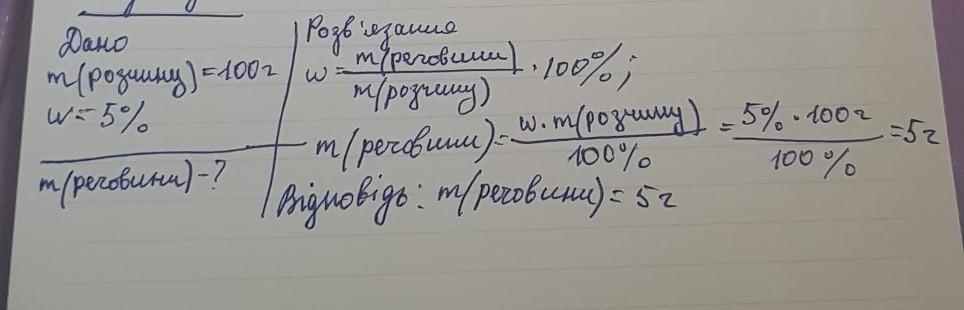 Дано
m(розчину)=100г
w=5%
m(речовини)-?
Розв'язання
w=m(речовини)/m(розчину)·100%;
m(речовини)=w·m(розчину)/100%=5%·100г/100%=5г
Відповідь: m(речовини)=5г